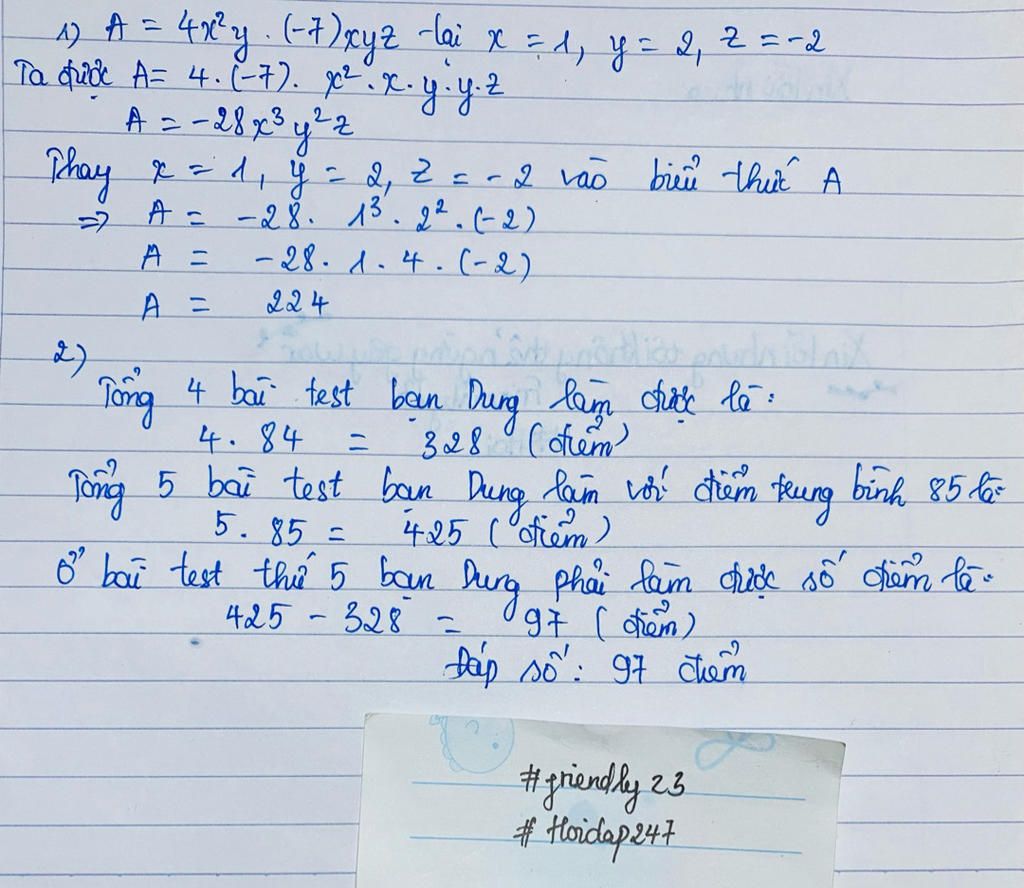 1) A = 4x²y . (-7)xyz tại x = 1, y = 2, z = -2
Ta được A = 4 . (-7) . x² . x . y . y . z
A = -28x³y²z
Thay x = 1, y = 2, z = -2 vào biểu thức A
=> A = -28 . 1³ . 2² . (-2)
A = -28 . 1 . 4 . (-2)
A = 224
2)
Tổng 4 bài test bạn Dung làm được là :
4 . 84 = 328 (điểm)
Tổng 5 bài test bạn Dung làm với điểm trung bình 85 là:
5 . 85 = 425 (điểm)
Ở bài test thứ 5 bạn Dung phải làm được số điểm là:
425 - 328 = 97 (điểm)
Đáp số : 97 điểm
#friendly23
#Hoidap247